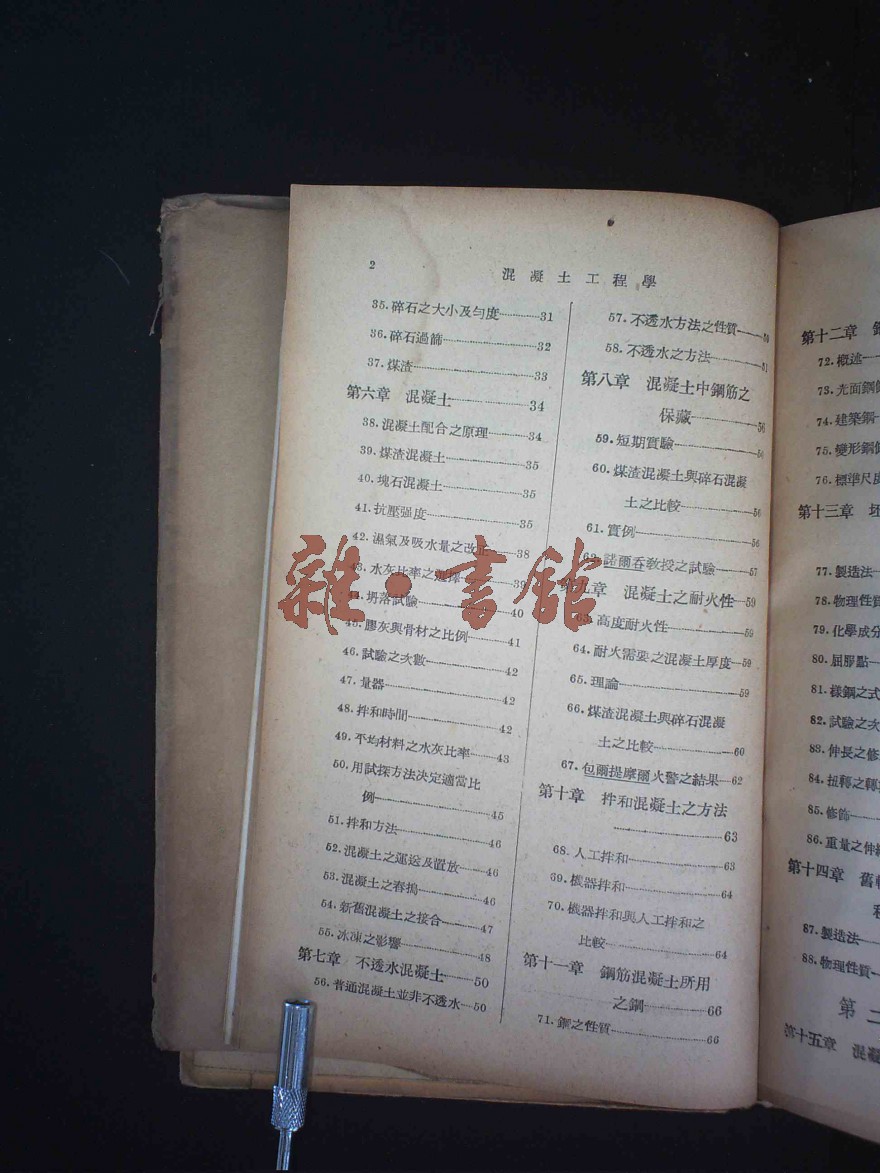 2
混凝土工程學
35.碎石之大小及勻度 31
36.碎石過篩 32
37.煤渣 33
第六章 混凝土 34
38.混凝土配合之原理 34
39.煤渣混凝土 35
40.塊石混凝土 35
41.抗壓强度 35
42.濕氣及吸水量之改正 38
43.水灰比率之選擇 39
44.坍落試驗 40
45.膠灰與骨材之比例 41
46.試驗之次數 42
47.量器 42
48.拌和時間 42
49.平均材料之水灰比率 43
50.用試探方法決定適當比
例 45
51.拌和方法 46
52.混凝土之運送及置放 46
53.混凝土之舂搗 46
54.新舊混凝土之接合 47
55.冰凍之影響 48
第七章 不透水混凝土 50
56.普通混凝土並非不透水 50
57.不透水方法之性質
58.不透水之方法 51
第八章 混凝土中鋼筋之
保藏 56
59.短期實驗 56
60.煤渣混凝土與碎石混凝
土之比較 56
61.實例 56
62.諾爾吞敎授之試驗 57
第九章 混凝土之耐火性 59
63.高度耐火性 59
64.耐火需要之混凝土厚度 59
65.理論 59
66.煤渣混凝土與碎石混凝
土之比較 60
67.包爾提摩爾火警之結果 62
第十章 拌和混凝土之方法
63
68.人工拌和 63
69.機器拌和 64
70.機器拌和與人工拌和之
比較 64
第十一章 鋼筋混凝土所用
之鋼 66
71.鋼之性質 66
第十二章
72.概述
73.光面鋼
74.建築鋼
75.變形鋼
76.標準尺度
第十三章
77.製造法
78.物理性質
79.化學成分
80.屈膠點
81.樣鋼之式
82.試驗之次
83.伸長之修
84.扭轉之轉
85.修飾
86.重量之伸
第十四章 舊
87.製造法
88.物理性質
第二
第十五章 混
雜·書館